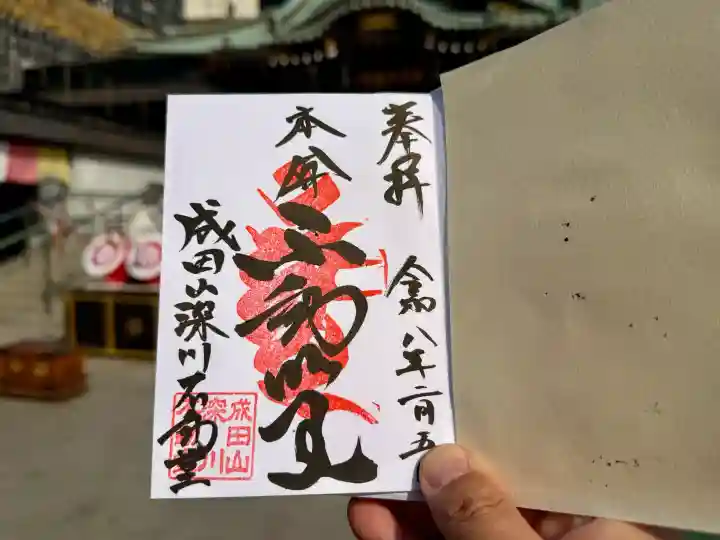 奉拝
令和八年二月五
本尊
不動明王
成田山深川不動堂
成田山
深川